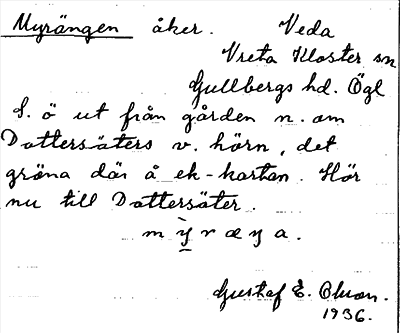 Myrängen åker. Veda
Vreta Kloster sn
Gullbergs hd. Ögl
L. ö ut från gården n. om
Dottersäters v. hörn, det
gröna där å ek-kartan. Hör
nu till Dottersäter.
m ỳ r æ ŋ a.
Gustaf E. Olson.
1936.